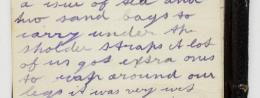 a issue of tea and
two sand bags to
carry under the
sholder straps a lot
of us got extra ones
to wrap around our
legs it was very wet